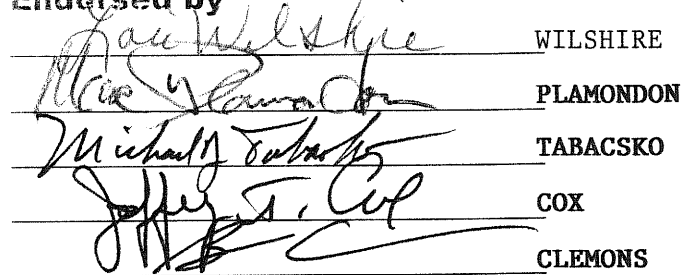 Endorsed by
Lori Wilshire WILSHIRE
Plamondon PLAMONDON
Michael J Tabacsko TABACSKO
Jeffrey T. Cox COX
CLEMONS